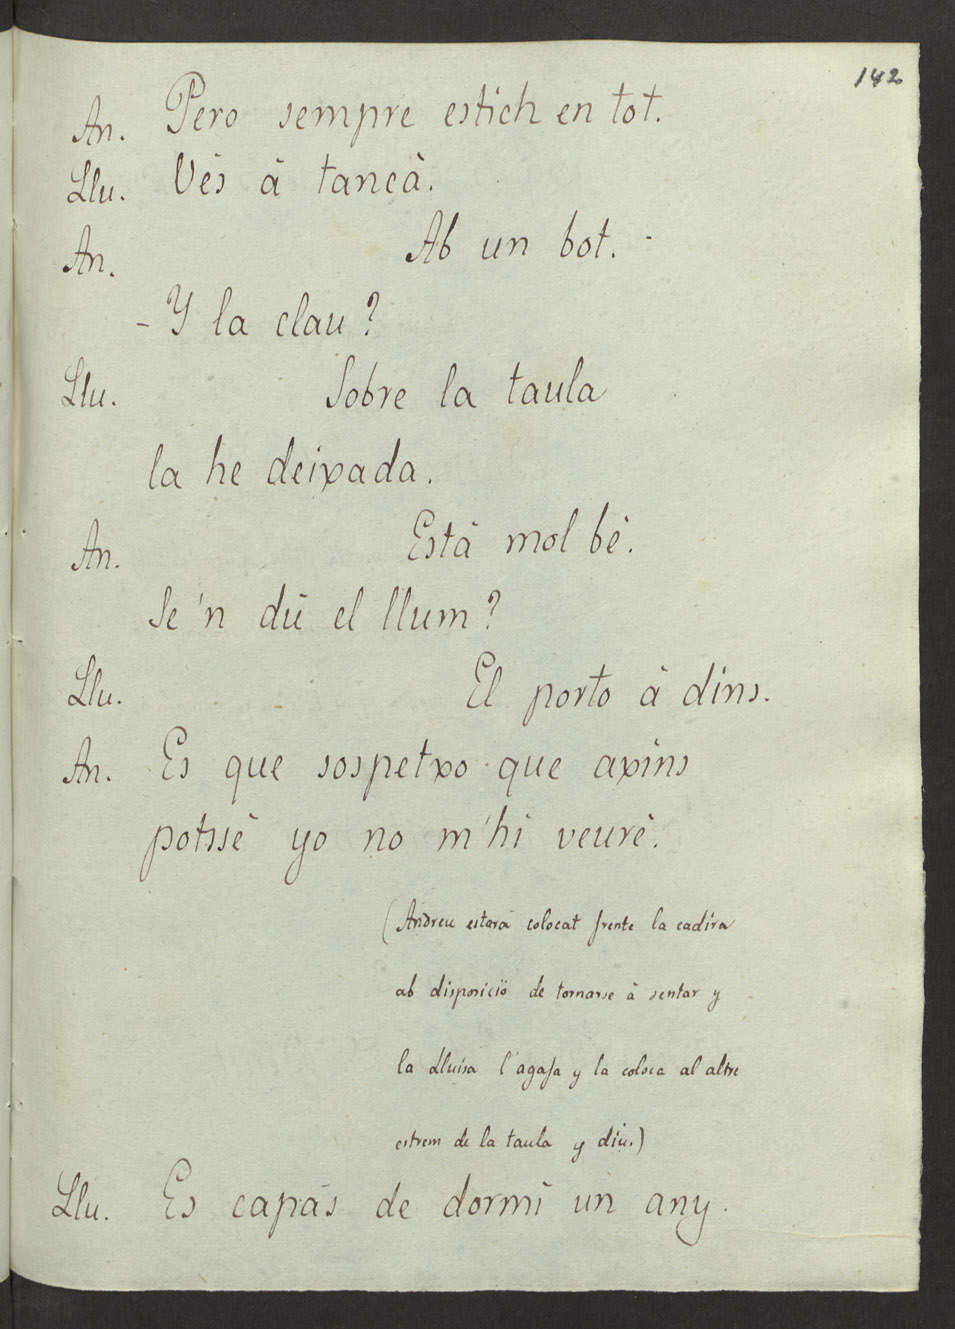 142
An. Pero sempre estich en tot.
Llu. Vés á tancà.
An. Ab un bot. -
- Y la clau?
Llu. Sobre la taula
la he deixada.
An. Està mol bé.
Se 'n dú el llum?
Llu. El porto á dins.
An. Es que sospetxo que axins
potssé yo no m'hi veuré.
(Andreu estará colocat frente la cadira
ab disposició de tornarse á sentar y
la Lluisa l'agafa y la coloca al altre
estrem de la taula y diu.)
Llu. Es capás de dormí un any.